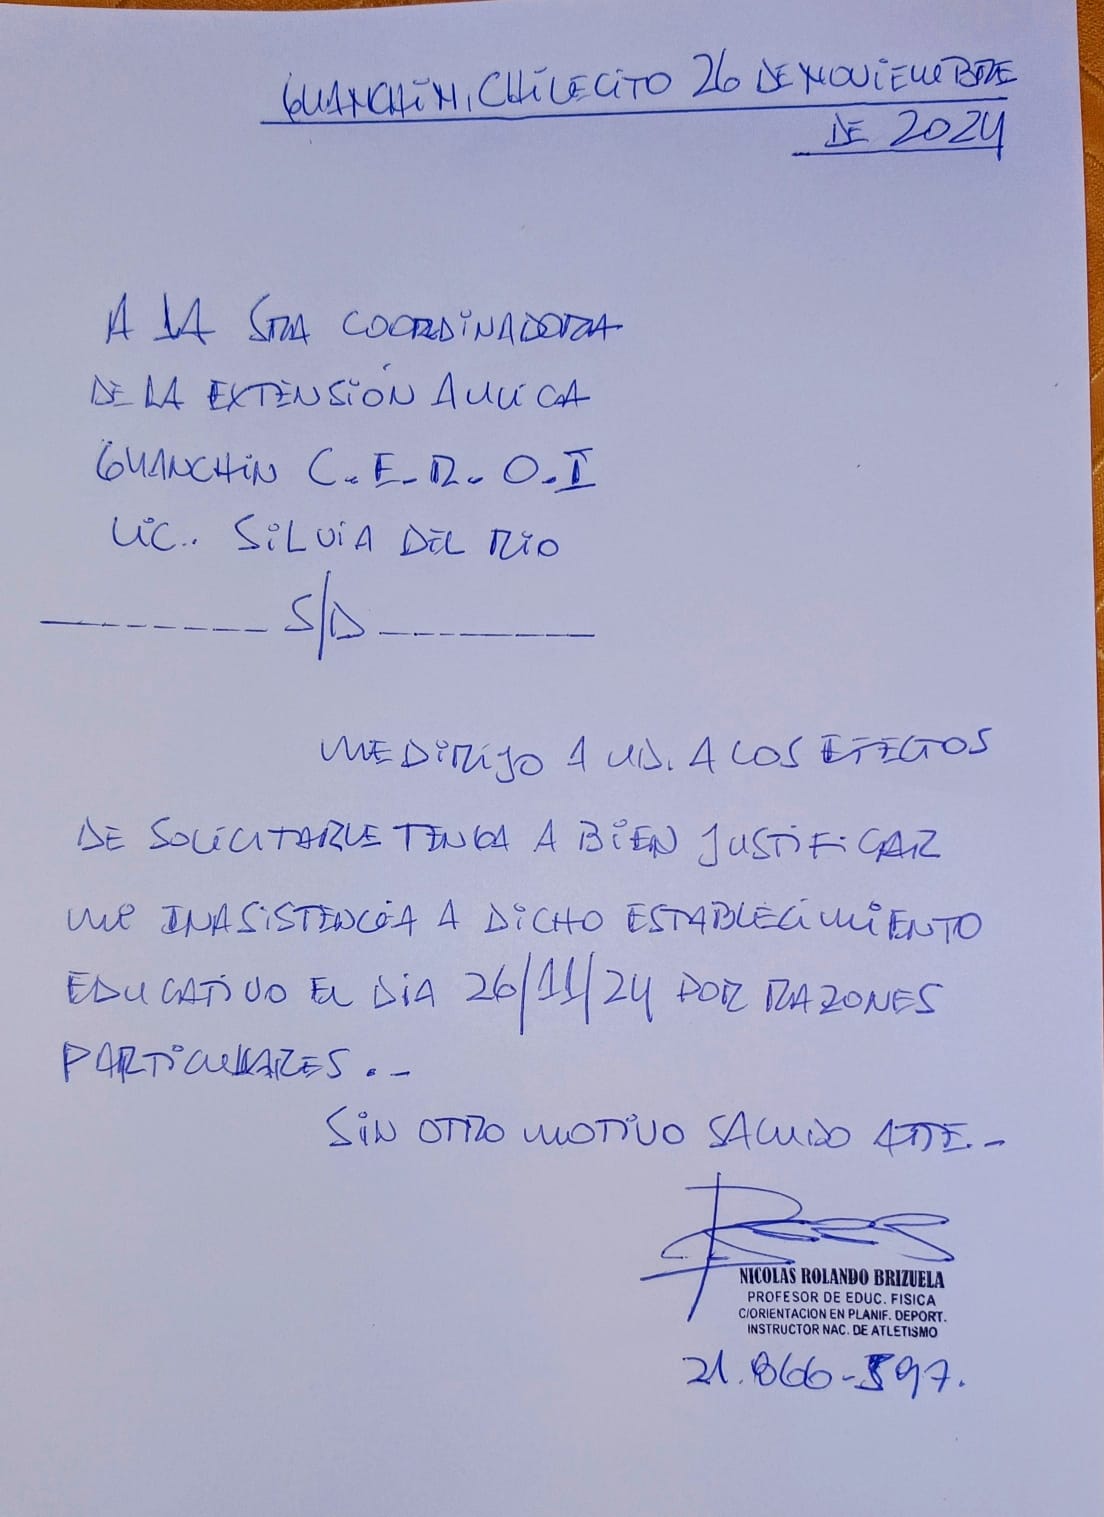 GUANCHIN, CHILECITO 26 DE NOVIEMBRE
DE 2024
A LA SRA COORDINADORA
DE LA EXTENSIÓN AULICA
GUANCHIN C.E.R.O.I
LIC. SILVIA DEL RIO
S/D
ME DIRIJO A UD. A LOS EFECTOS
DE SOLICITARLE TENGA A BIEN JUSTIFICAR
MI INASISTENCIA A DICHO ESTABLECIMIENTO
EDUCATIVO EL DIA 26/11/24 POR RAZONES
PARTICULARES.-
SIN OTRO MOTIVO SALUDO ATTE.-
NICOLAS ROLANDO BRIZUELA
PROFESOR DE EDUC. FISICA
C/ORIENTACION EN PLANIF. DEPORT.
INSTRUCTOR NAC. DE ATLETISMO
21.866-597.